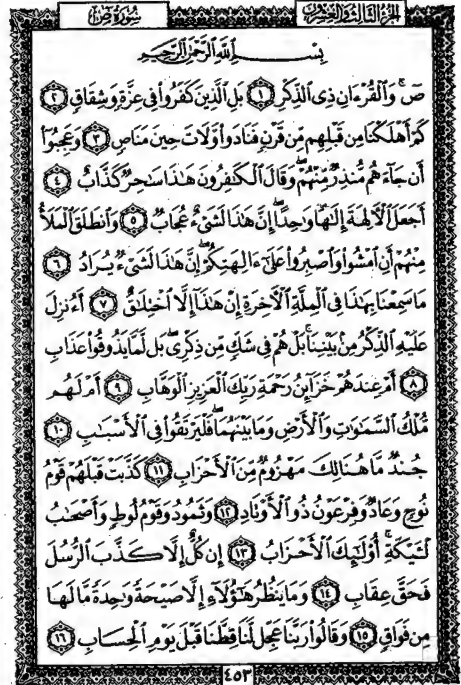 الجزء الثالث والعشرون
سورة ص
بِسْمِ اللَّهِ الرَّحْمَٰنِ الرَّحِيمِ
صٓ ۚ وَٱلْقُرْءَانِ ذِى ٱلذِّكْرِ ١ بَلِ ٱلَّذِينَ كَفَرُوا۟ فِى عِزَّةٍ وَشِقَاقٍ ٢
كَمْ أَهْلَكْنَا مِن قَبْلِهِم مِّن قَرْنٍ فَنَادَوا۟ وَّلَاتَ حِينَ مَنَاصٍ ٣ وَعَجِبُوٓا۟
أَن جَآءَهُم مُّنذِرٌ مِّنْهُمْ ۖ وَقَالَ ٱلْكَـٰفِرُونَ هَـٰذَا سَـٰحِرٌ كَذَّابٌ ٤
أَجَعَلَ ٱلْـَٔالِهَةَ إِلَـٰهًا وَٰحِدًا ۖ إِنَّ هَـٰذَا لَشَىْءٌ عُجَابٌ ٥ وَٱنطَلَقَ ٱلْمَلَأُ
مِنْهُمْ أَنِ ٱمْشُوا۟ وَٱصْبِرُوا۟ عَلَىٰٓ ءَالِهَتِكُمْ ۖ إِنَّ هَـٰذَا لَشَىْءٌ يُرَادُ ٦
مَا سَمِعْنَا بِهَـٰذَا فِى ٱلْمِلَّةِ ٱلْـَٔاخِرَةِ إِنْ هَـٰذَآ إِلَّا ٱخْتِلَـٰقٌ ٧ أَءُنزِلَ
عَلَيْهِ ٱلذِّكْرُ مِنۢ بَيْنِنَا ۚ بَلْ هُمْ فِى شَكٍّ مِّن ذِكْرِى ۖ بَل لَّمَّا يَذُوقُوا۟ عَذَابِ
٨ أَمْ عِندَهُمْ خَزَآئِنُ رَحْمَةِ رَبِّكَ ٱلْعَزِيزِ ٱلْوَهَّابِ ٩ أَمْ لَهُم
مُّلْكُ ٱلسَّمَـٰوَٰتِ وَٱلْأَرْضِ وَمَا بَيْنَهُمَا ۖ فَلْيَرْتَقُوا۟ فِى ٱلْأَسْبَـٰبِ ١٠
جُندٌ مَّا هُنَالِكَ مَهْزُومٌ مِّنَ ٱلْأَحْزَابِ ١١ كَذَّبَتْ قَبْلَهُمْ قَوْمُ
نُوحٍ وَعَادٌ وَفِرْعَوْنُ ذُو ٱلْأَوْتَادِ ١٢ وَثَمُودُ وَقَوْمُ لُوطٍ وَأَصْحَـٰبُ
لْـَٔيْكَةِ ۚ أُو۟لَـٰٓئِكَ ٱلْأَحْزَابُ ١٣ إِن كُلٌّ إِلَّا كَذَّبَ ٱلرُّسُلَ
فَحَقَّ عِقَابِ ١٤ وَمَا يَنظُرُ هَـٰٓؤُلَآءِ إِلَّا صَيْحَةً وَٰحِدَةً مَّا لَهَا
مِن فَوَاقٍ ١٥ وَقَالُوا۟ رَبَّنَا عَجِّل لَّنَا قِطَّنَا قَبْلَ يَوْمِ ٱلْحِسَابِ ١٦
٤٥٣